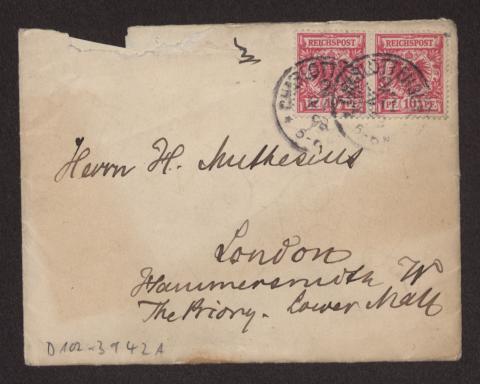 REICHSPOST REICHSPOST
10 PF 10 PF
Herrn H. Muthesius
London
Hammersmith W
The Priory. Lower Mall
D102-3942A